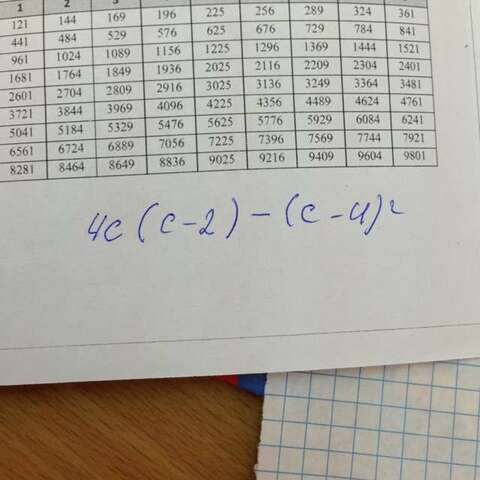 1 2
121 144 169 196 225 256 289 324 361
441 484 529 576 625 676 729 784 841
961 1024 1089 1156 1225 1296 1369 1444 1521
1681 1764 1849 1936 2025 2116 2209 2304 2401
2601 2704 2809 2916 3025 3136 3249 3364 3481
3721 3844 3969 4096 4225 4356 4489 4624 4761
5041 5184 5329 5476 5625 5776 5929 6084 6241
6561 6724 6889 7056 7225 7396 7569 7744 7921
8281 8464 8649 8836 9025 9216 9409 9604 9801
4c(c-2)-(c-4)²